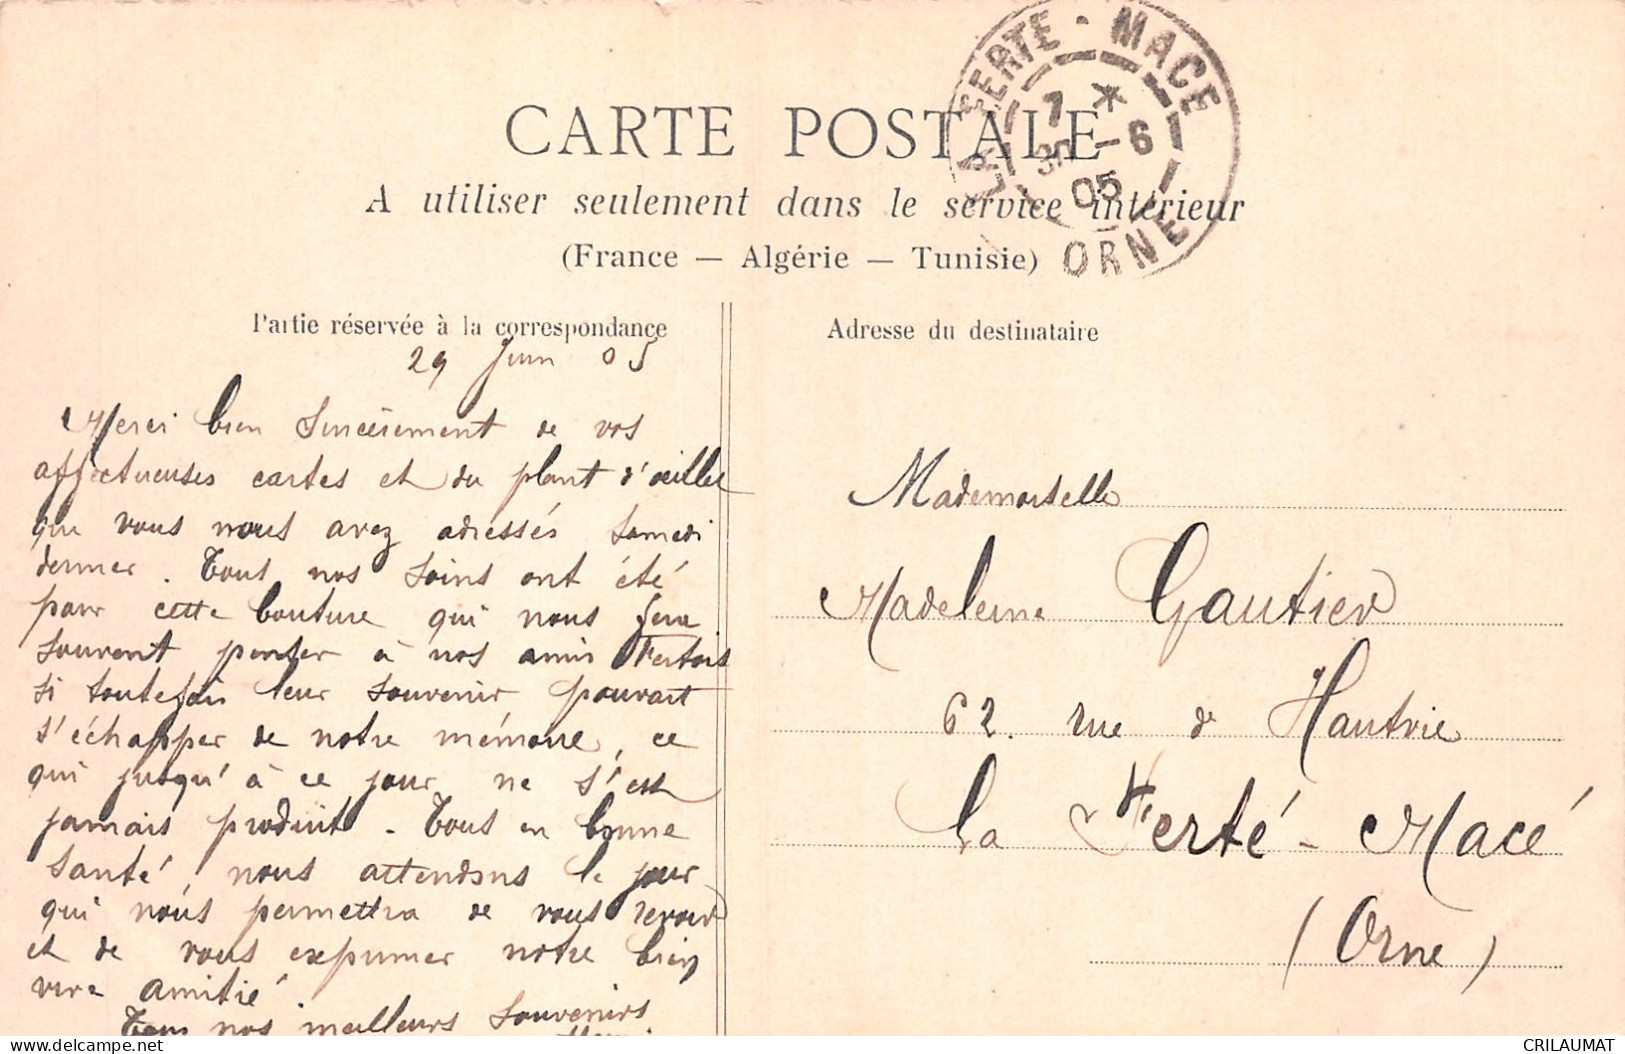 CARTE POSTALE
A utiliser seulement dans le service intérieur
(France — Algérie — Tunisie)
LA FERTE-MACE
7 *
30 - 6
05
ORNE
Partie réservée à la correspondance
29 Juin 05
Merci bien sincèrement de vos
affectueuses cartes et du plant d'œillet
que vous nous avez adressés samedi
dernier. Tous nos soins ont été
pour cette bouture qui nous fera
souvent penser à nos amis Fertois
si toutefois leur souvenir pouvait
s'échapper de notre mémoire, ce
qui jusqu'à ce jour ne s'est
jamais produit - Tous en bonne
santé, nous attendons le jour
qui nous permettra de vous revoir
et de vous exprimer notre bien
vive amitié.
Tous nos meilleurs souvenirs
Adresse du destinataire
Mademoiselle
Madeleine Gautier
62. rue de Hautvie
La Ferté-Macé
(Orne)
delcampe.net
CRILAUMAT